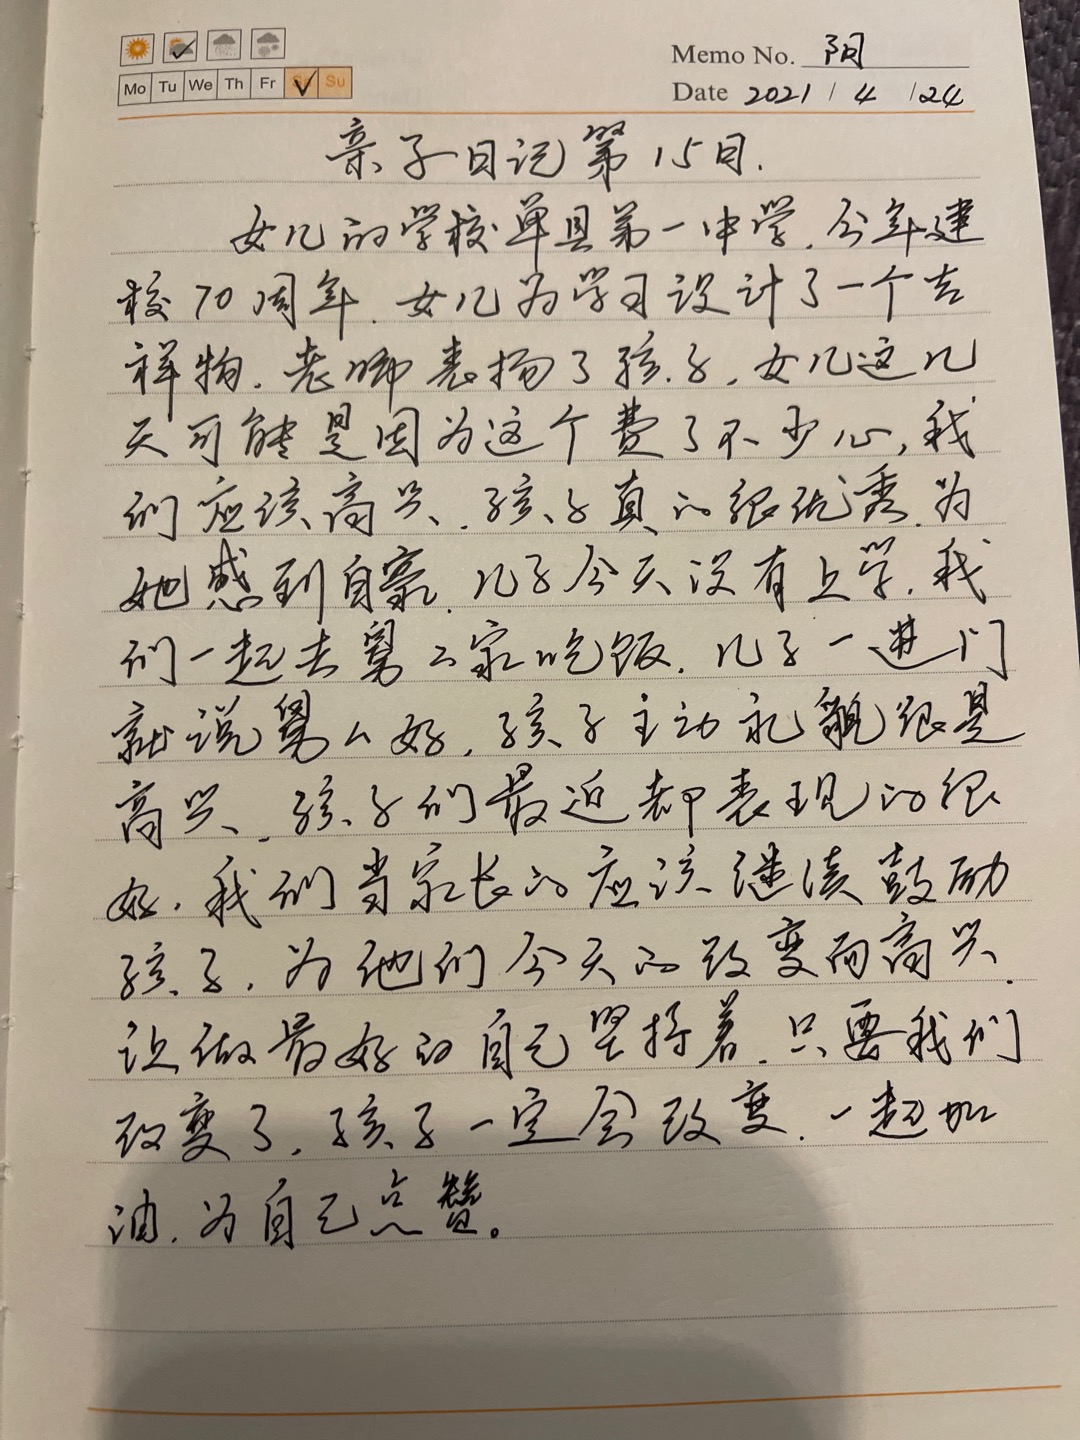 Memo No. 阴
Mo Tu We Th Fr Sa Su
Date 2021 / 4 / 24
亲子日记第15日.
女儿的学校单县第一中学.今年建
校70周年.女儿为学习设计了一个吉
祥物.老师表扬了孩子,女儿这几
天可能是因为这个费了不少心,我
们应该高兴.孩子真的很优秀.为
她感到自豪.儿子今天没有上学.我
们一起去舅二家吃饭.儿子一进门
就说舅么好.孩子主动礼貌很是
高兴.孩子们最近都表现的很
好.我们当家长的应该继续鼓励
孩子.为他们今天的改变而高兴.
让做最好的自己坚持着.只要我们
改变了.孩子一定会改变.一起加
油.为自己点赞。